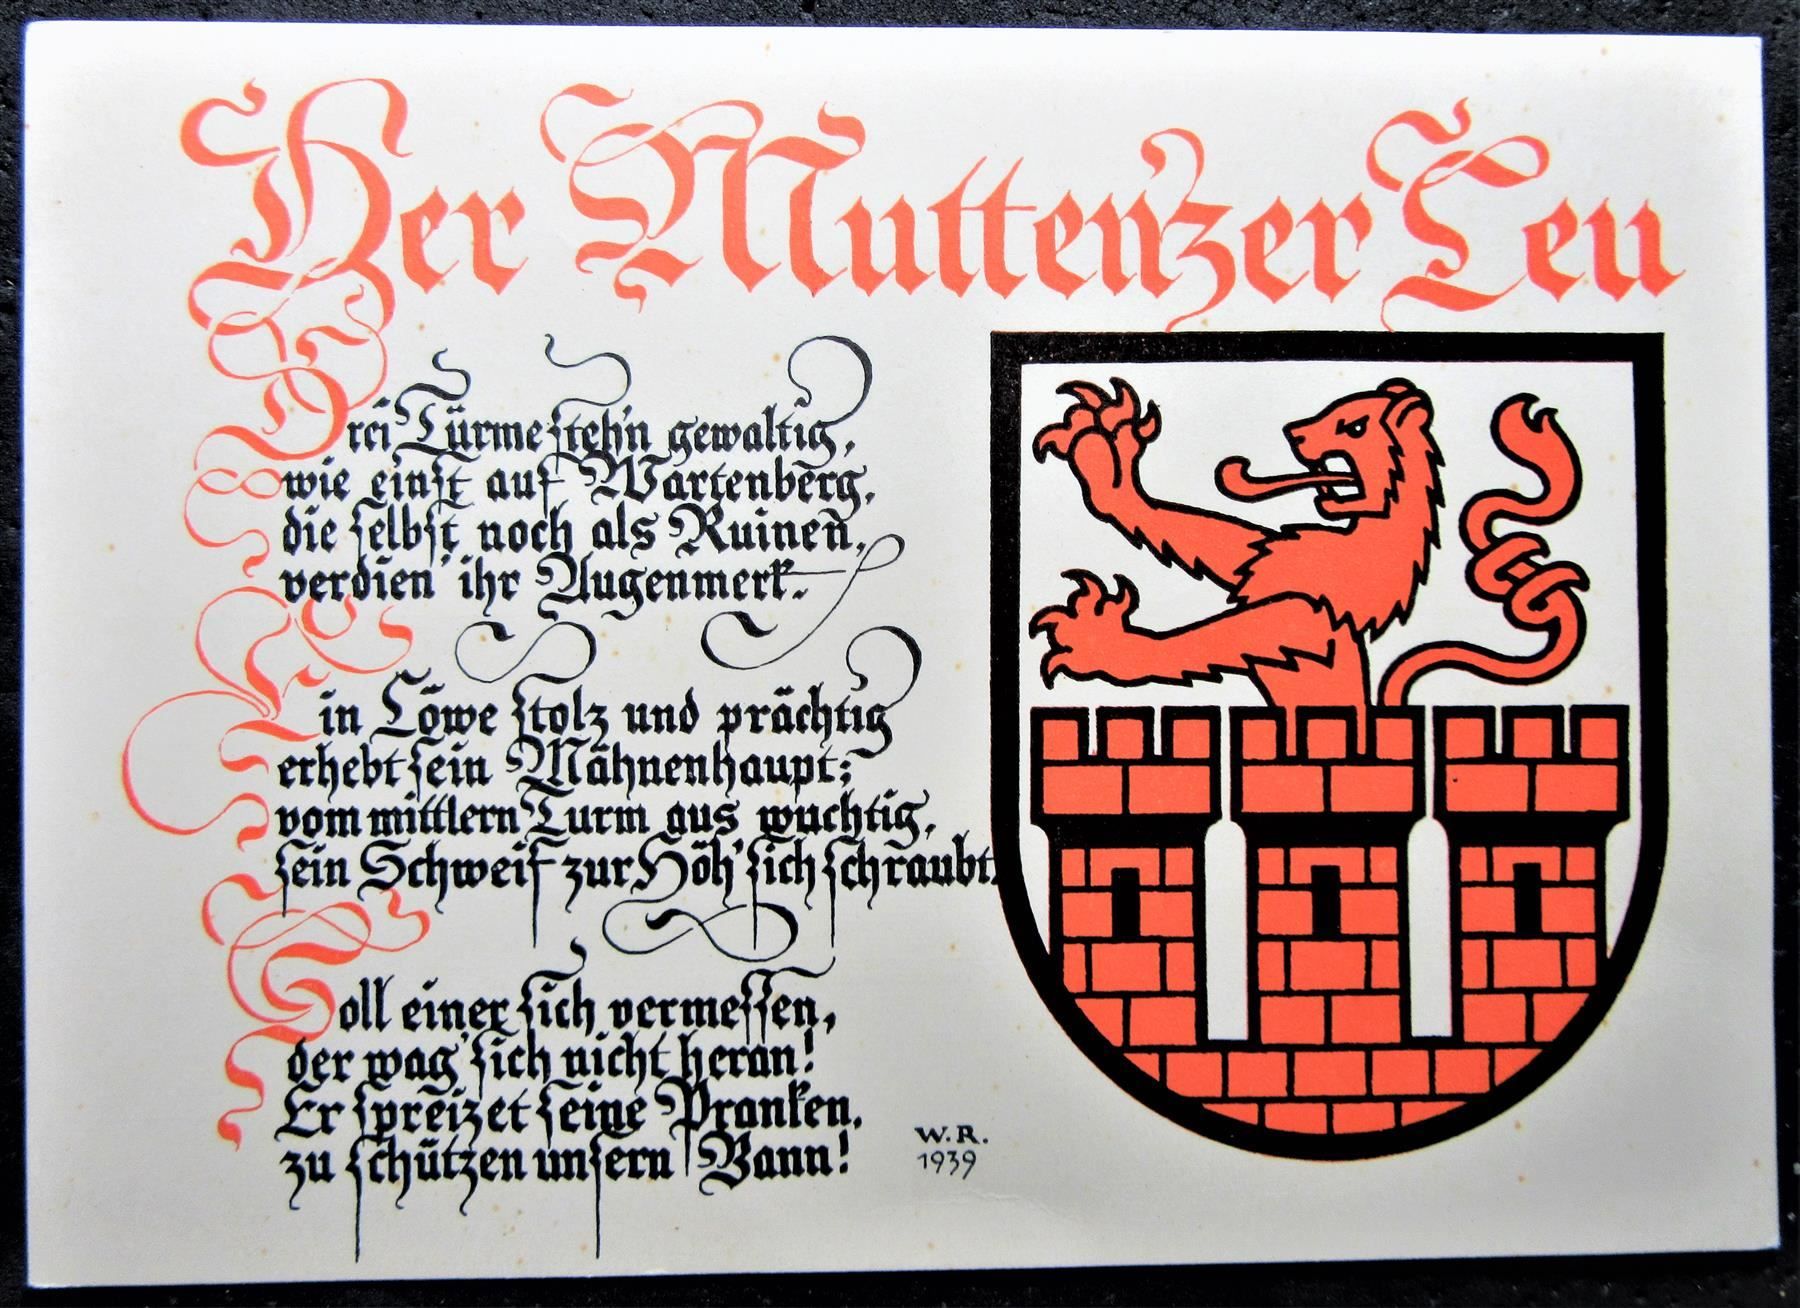 Der Muttenzer Leu
Drei Türme steh'n gewaltig,
wie einst auf Wartenberg,
die selbst noch als Ruinen,
verdien' ihr Augenmerk.
Ein Löwe stolz und prächtig
erhebt sein Mähnenhaupt;
vom mittlern Turm aus wuchtig,
sein Schweif zur Höh' sich schraubt.
Soll einer sich vermessen,
der wag' sich nicht heran!
Er spreizet seine Pranken,
zu schützen unsern Bann!
W.R.
1939